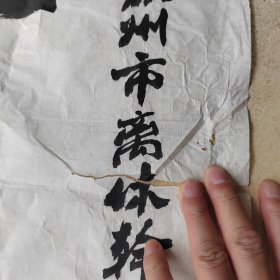 州市离休幹